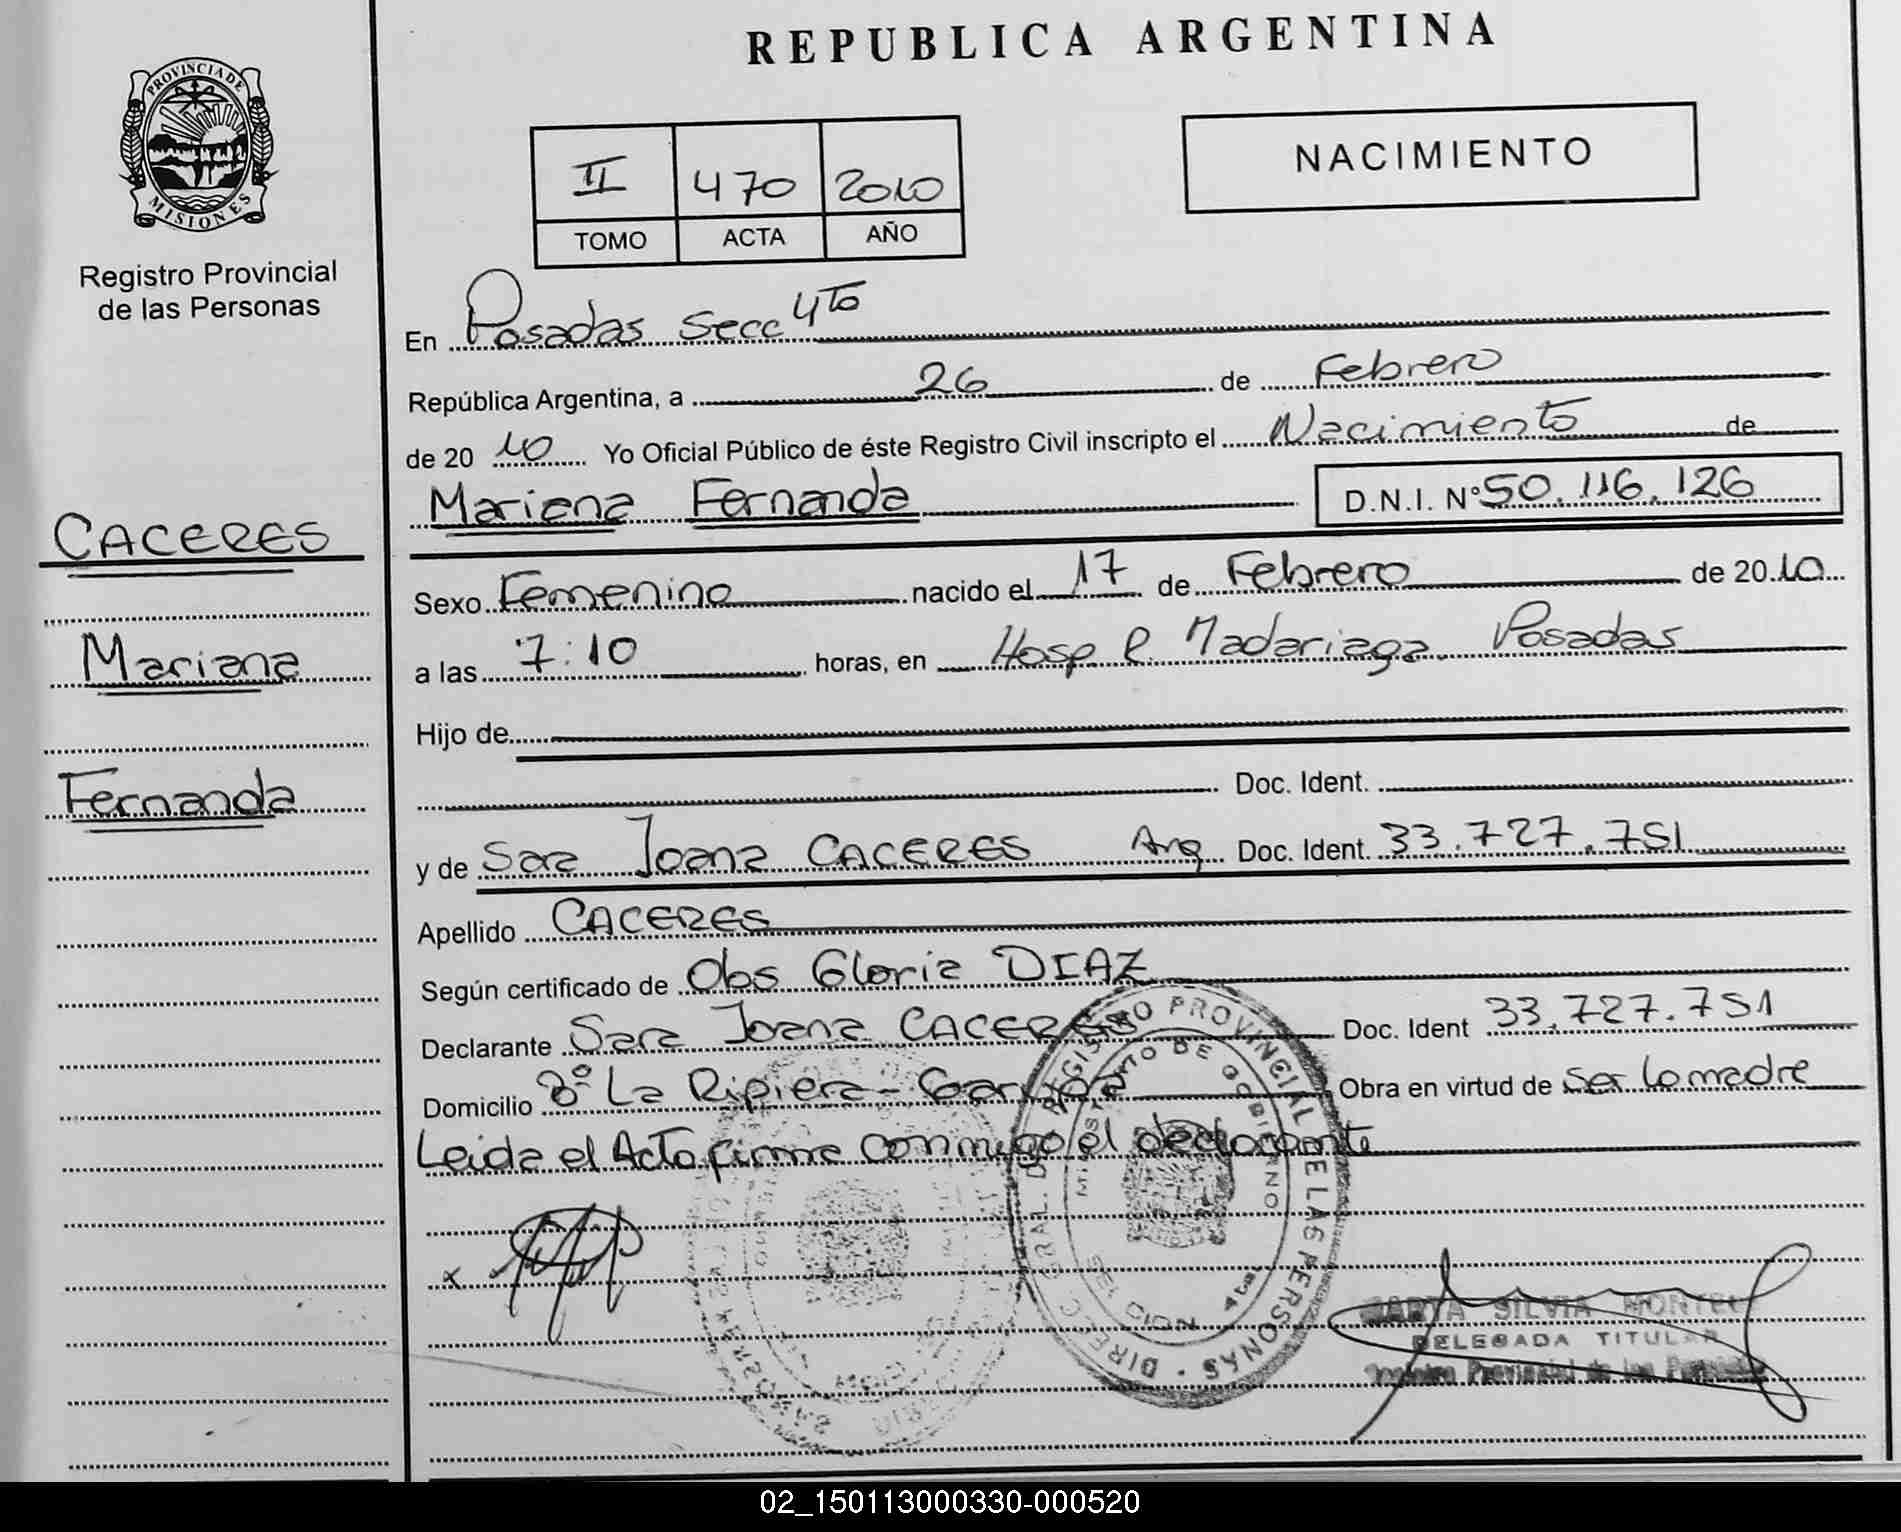 REPUBLICA ARGENTINA
PROVINCIA DE
MISIONES
Registro Provincial
de las Personas
II 470 2010
TOMO ACTA AÑO
NACIMIENTO
En Posadas Secc 4to
República Argentina, a 26 de Febrero
de 2010 Yo Oficial Público de éste Registro Civil inscripto el Nacimiento de
Mariana Fernanda D.N.I. Nº 50.116.126
CACERES
Mariana
Fernanda
Sexo Femenino nacido el 17 de Febrero de 2010
a las 7:10 horas, en Hosp R. Madariaga. Posadas
Hijo de
Doc. Ident.
y de Sara Joana CACERES Arg Doc. Ident. 33.727.751
Apellido CACERES
Según certificado de Obs Gloria DIAZ
Declarante Sara Joana CACERES Doc. Ident 33.727.751
Domicilio Bº La Ripiera - Obra en virtud de ser la madre
Leida el Acta firma conmigo el declarante
x
DIRECC GRAL. DE REGISTRO PROVINCIAL DE LAS PERSONAS
MINISTERIO DE GOBIERNO
SILVIA
DELEGADA TITULAR
Registro Provincial de las Personas
02_150113000330-000520